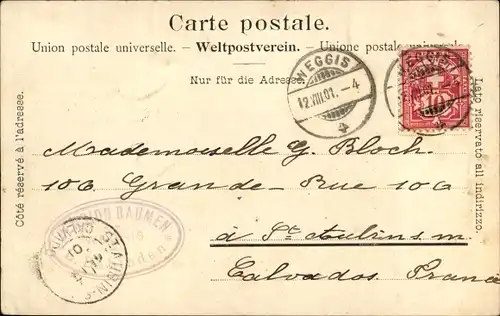 Carte postale.
Union postale universelle. – Weltpostverein. – Unione postale universale
Nur für die Adresse.
Côté réservé à l'adresse.
Lato riservato all indirizzo.
WEGGIS
12.VIII.01.–4
10
Mademoiselle G. Bloch.
106 Grande-Rue 106
à St. Aubin s. m
Calvados. France
BAUMEN
ST AUBIN-S